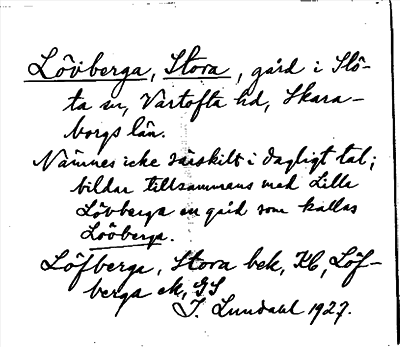 Lövberga, Stora, gård i Slö-
ta sn, Vartofta hd, Skara-
borgs län.
Nämnes icke särskilt i dagligt tal;
bildar tillsammans med Lilla
Lövberga en gård som kallas
Lööberga.
Löfberga, Stora bek, Kb, Löf-
berga ek, GS
J. Lundahl 1927.